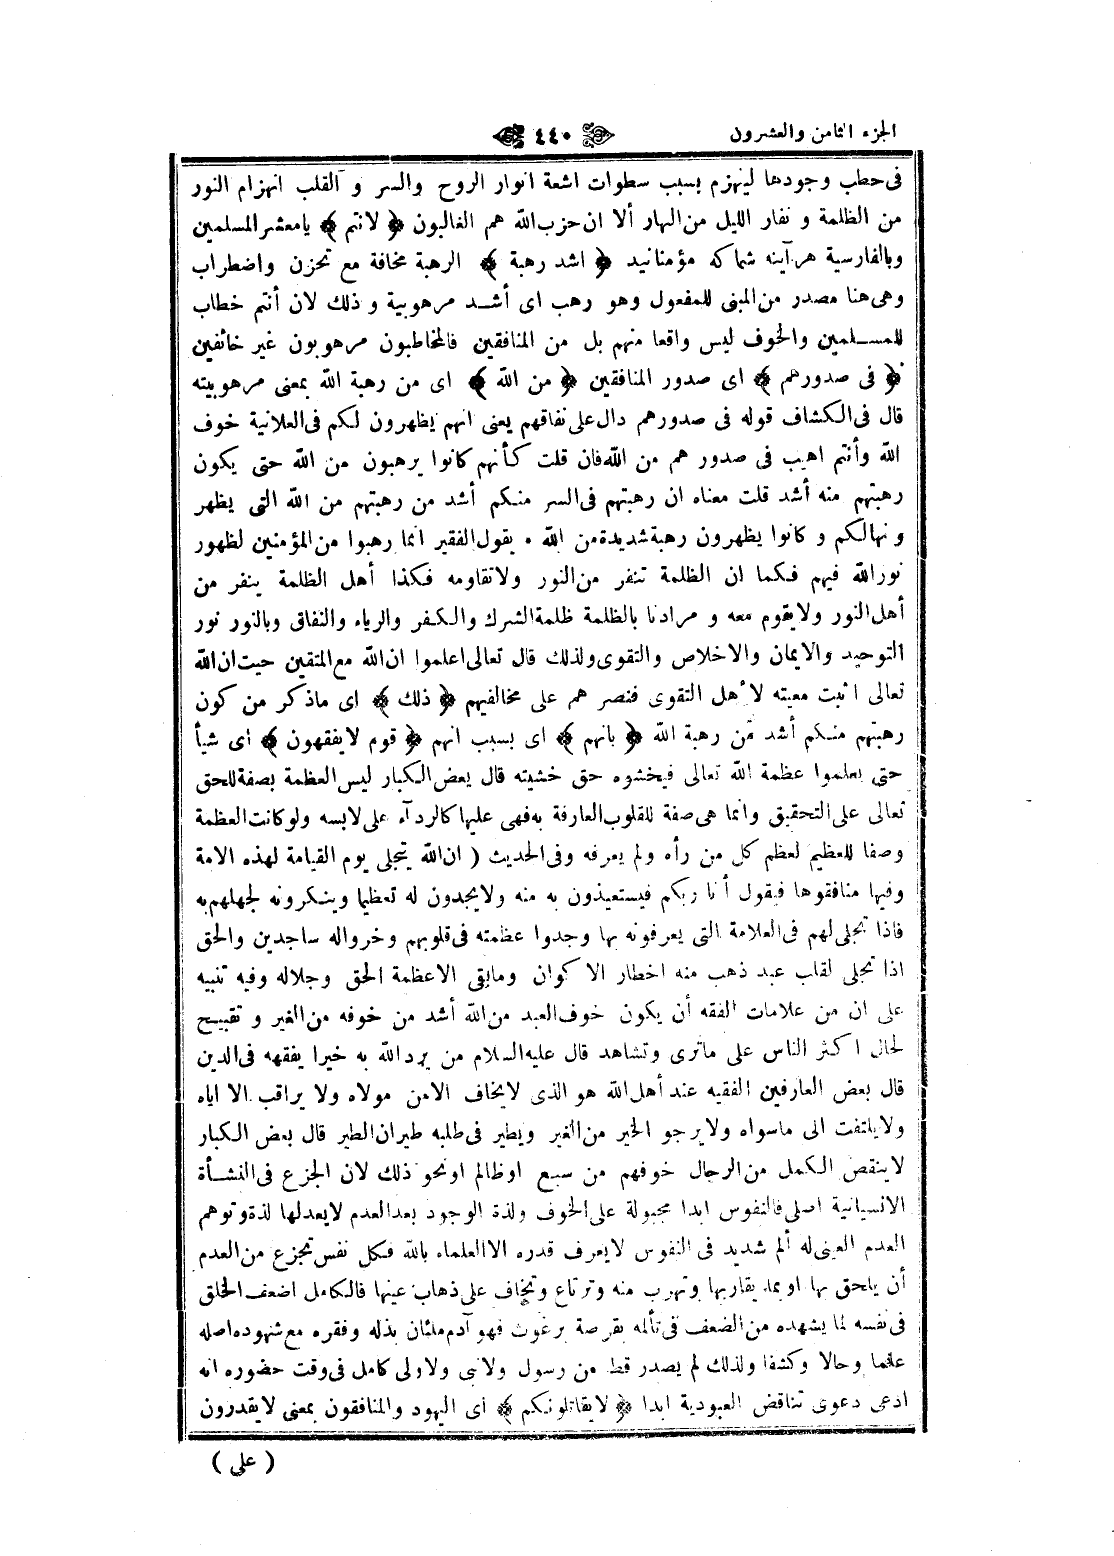 الجزء الثامن والعشرون
٤٤٠
فى حطب وجودها لينهزم بسبب سطوات اشعة انوار الروح والسر و القلب انهزام النور
من الظلمة و نفار الليل من النهار ألا ان حزب الله هم الغالبون ﴿ لانتم ﴾ يامعشر المسلمين
وبالفارسية هر آينه شماكه مؤمنانيد ﴿ اشد رهبة ﴾ الرهبة مخافة مع تحزن واضطراب
وهى هنا مصدر من المبنى للمفعول وهو رهب اى أشد مرهوبية و ذلك لان أنتم خطاب
للمسلمين والخوف ليس واقعا منهم بل من المنافقين فالمخاطبون مرهوبون غير خائفين
﴿ فى صدورهم ﴾ اى صدور المنافقين ﴿ من الله ﴾ اى من رهبة الله بمعنى مرهوبيته
قال فى الكشاف قوله فى صدورهم دال على نفاقهم يعنى انهم يظهرون لكم فى العلانية خوف
الله وأنتم اهيب فى صدور هم من الله فان قلت كأنهم كانوا يرهبون من الله حتى يكون
رهبتهم منه أشد قلت معناه ان رهبتهم فى السر منكم أشد من رهبتهم من الله التى يظهر
ونهالكم و كانوا يظهرون رهبة شديدة من الله • يقول الفقير انما رهبوا من المؤمنين لظهور
نور الله فيهم فكما ان الظلمة تنفر من النور ولاتقاومه فكذا أهل الظلمة ينفر من
أهل النور ولايقوم معه و مرادنا بالظلمة ظلمة الشرك والكفر والرياء والنفاق وبالنور نور
التوحيد والايمان والاخلاص والتقوى ولذلك قال تعالى اعلموا ان الله مع المتقين حيث ان الله
تعالى اثبت معيته لأهل التقوى فنصر هم على مخالفيهم ﴿ ذلك ﴾ اى ماذكر من كون
رهبتهم منكم أشد من رهبة الله ﴿ بانهم ﴾ اى بسبب انهم ﴿ قوم لايفقهون ﴾ اى شيأ
حتى يعلموا عظمة الله تعالى فيخشوه حق خشيته قال بعض الكبار ليس العظمة بصفة للحق
تعالى على التحقيق وانما هى صفة للقلوب العارفة به فهى عليها كالردآء على لابسه ولوكانت العظمة
وصفا للعظيم لعظم كل من رأه ولم يعرفه وفى الحديث ( ان الله يتجلى يوم القيامة لهذه الامة
وفيها منافقوها فيقول أنا ربكم فيستعيذون به منه ولايجدون له تعظيما وينكرونه لجهلهم به
فاذا تجلى لهم فى العلامة التى يعرفونه بها وجدوا عظمته فى قلوبهم وخرواله ساجدين والحق
اذا تجلى لقلب عبد ذهب منه اخطار الاكوان ومابقى الاعظمة الحق وجلاله وفيه تنبيه
على ان من علامات الفقه أن يكون خوف العبد من الله أشد من خوفه من الغير و تقبيح
لحال اكثر الناس على ماترى وتشاهد قال عليه السلام من يرد الله به خيرا يفقهه فى الدين
قال بعض العارفين الفقيه عند أهل الله هو الذى لايخاف الامن مولاه ولا يراقب الا اياه
ولايلتفت الى ماسواه ولايرجو الخير من الغير ويطير فى طلبه طيران الطير قال بعض الكبار
لاينقص الكمل من الرجال خوفهم من سبع اوظالم اونحو ذلك لان الجزع فى النشأة
الانسانية اصلى فالنفوس ابدا مجبولة على الخوف ولذة الوجود بعد العدم لايعدلها لذة وتوهم
العدم العينى له ألم شديد فى النفوس لايعرف قدره الاالعلماء بالله فكل نفس تجزع من العدم
أن يلحق بها اوبما يقاربها وتهرب منه وترتاع وتخاف على ذهاب عينها فالكامل اضعف الخلق
فى نفسه لما يشهده من الضعف فى تألمه بقرصة برغوث فهو آدم ملئان بذله وفقره مع شهوده اصله
علما وحالا وكشفا ولذلك لم يصدر قط من رسول ولانبى ولاولى كامل فى وقت حضوره انه
ادعى دعوى تناقض العبودية ابدا ﴿ لايقاتلونكم ﴾ اى اليهود والمنافقون بمعنى لايقدرون
( على )